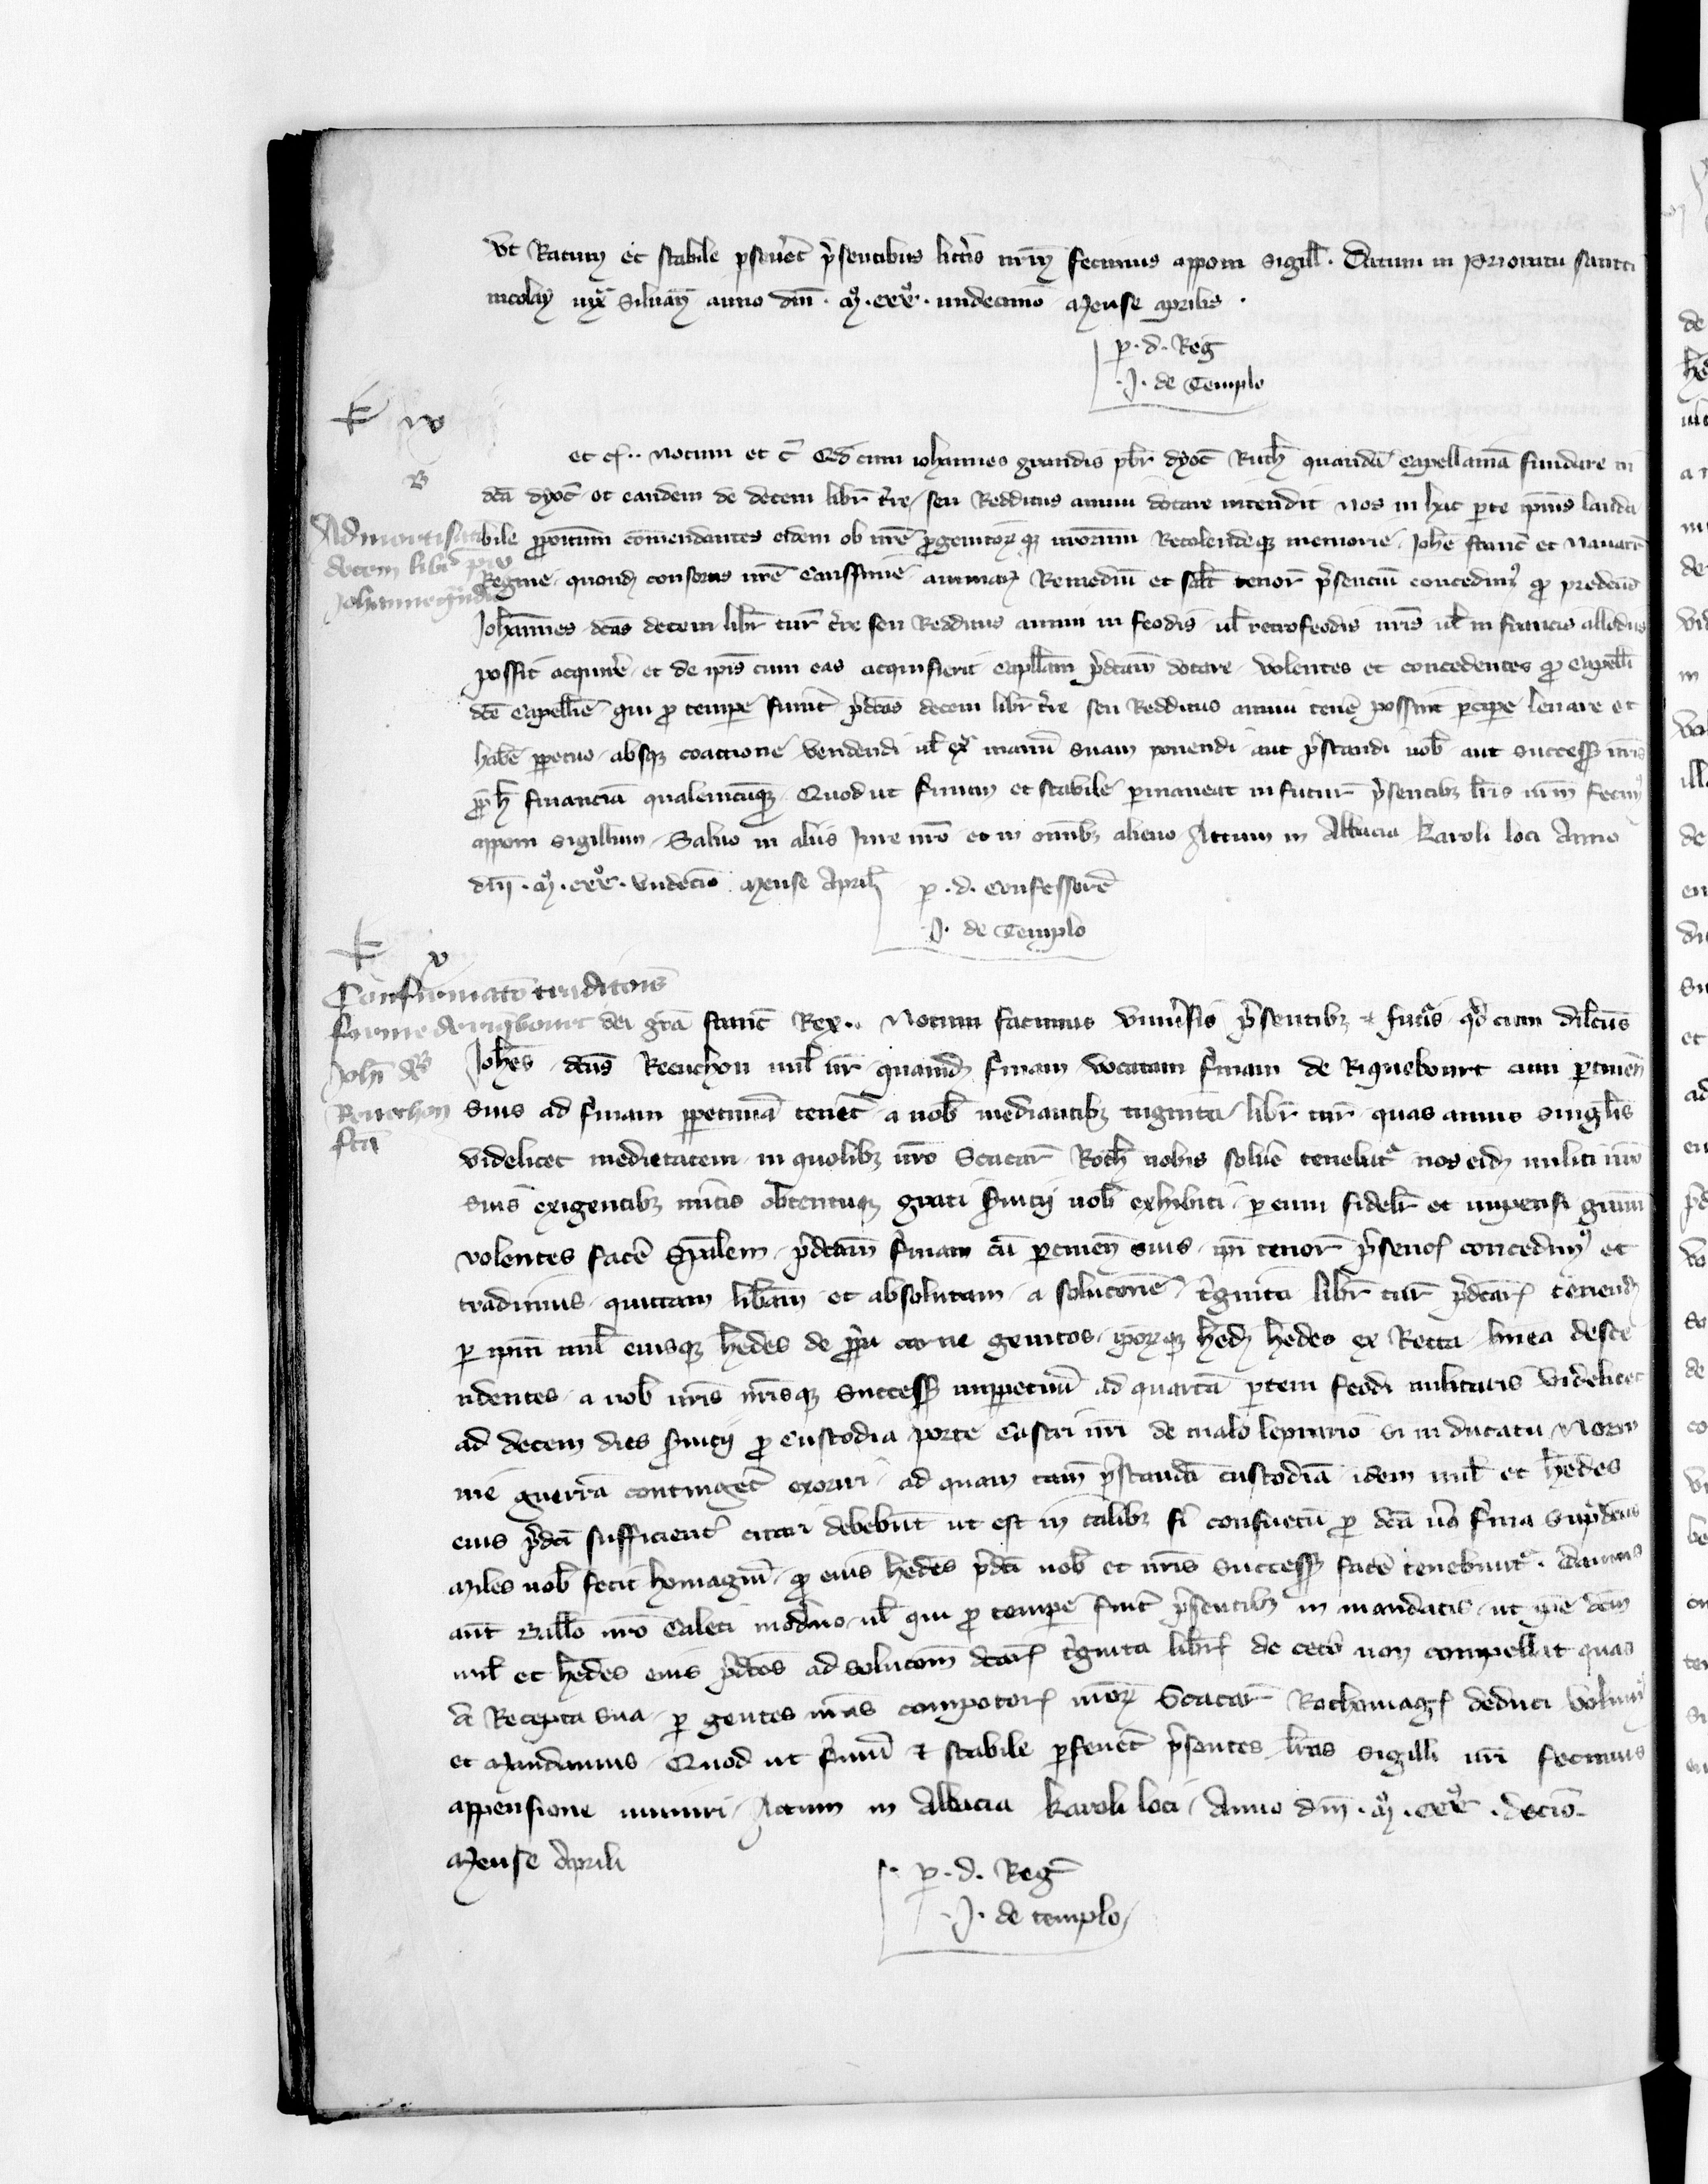 ut Ratum et stabile pseuet psentibus litteris nrm fecimus apponi sigill. Datum in prioratu sancti
nicolay iux siluan anno dni. mo. ccco. undecimo mense aprilis.
p. d. Reg
.J. de Templo
k iv
et c. notum et c Qd cum iohannes grandis pbr dyoc Ruth quandam Capellaniam fundare in
B
dca dyoc et eandem de decem libr tre seu Redditus annui dotare intendit nos in hac parte ipius lauda
Admortisatio
bile propoitum comendantes eidem ob nre progenitorumque nrorum Recolendeque memorie Johe franc et Nauarr
decem libr pro
Regine quondam consortis nre carissime animarum Remedium et salut tenore psencium concedimus quod predictus
Johanne grandi
Johannes dcas decem libr tur tre seu Redditus annui in feodis ul retrofeodis nris ul in francis allodiis
possit acquirere et de ipis cum eas acquisierit capllam pdcam dotare volentes et concedentes quod capelli
dce capellie qui pro tempe fuerit pdcas decem libr tre seu Redditus annui tene possint percipe leuare et
habe ppetuo absque coactione vendendi ul ex manu suam ponendi aut pstandi nob aut success nris
pph financia qualemcunque. Quod ut firmum et stabile permaneat in futur psentibus lris nrm fecimus
apponi sigillum. Saluo in aliis Jure nro et in omnibus alieno Actum in Abbacia karoli loci Anno
dni. mo. ccco. undecimo mense April
p. d. confessore
J. de Templo
k v
Confirmato traditois
firme de riqbourt
dei gra franc Rex.. Notum facimus uniuersis psentibus et futuris qd cum dilcus
Johi dco
Johes dcus Reeuchon mil nr quamdam firmam vocatam firmam de Riquebourt cum ptinen
Reuechon
suis ad firmam ppetuam teneret a nob mediantibus triginta libr tur quas annis singulis
fca
videlicet medietatem in quolibet nro Scacar Roth nobis soluere tenebatur nos eidem militi nro
suis exigentibus meritis obtentuque grati seruicij nob exhibiti per eum fidelr et impensi graciam
volentes face spalem pdcam firmam cum ptinen suis ipi tenore psencium concedimus et
tradimus quittam liberam et absolutam a solucione triginta libr tur pdcarum tenendam
per ipm mil eiusque hedes de propria carne genitos iporumque hedum hedes ex Recta linea desce
ndentes a nob nris nrisque success imppetuum ad quartam partem feodi militaris videlicet
ad decem dies seruicij pro custodia porte castri nri de malo leporario si in ducatu Norm
nie guerra contingeret exoriri ad quam tam pstandam custodiam idem mil et hedes
eius pdci sufficient citari debebunt ut est in talibus fi consuetum pro dca vero firma supdcus
Miles nob fecit homagium quod eius hedes pdci nob et nris success face tenebuntur. Damus
aut Ballo nro Caleti moderno ul qui pro tempe fuerit psentibus in mandatis ut ipe dcm
mil et hedes eius pdcos ad solucom dcarum triginta librarum de cetero non compellat quas
de Recepta sua per gentes nras compotorum nrorum Scacar Rothomagen deduci volumus
et Mandamus. Quod ut firmum et stabile perseueret psentes lras sigilli nri fecimus
appensione muniri Actum in Abbacia karoli loci Anno dni. mo. ccco. decio.
Mense Aprili
p. d. Reg
.J. de templo